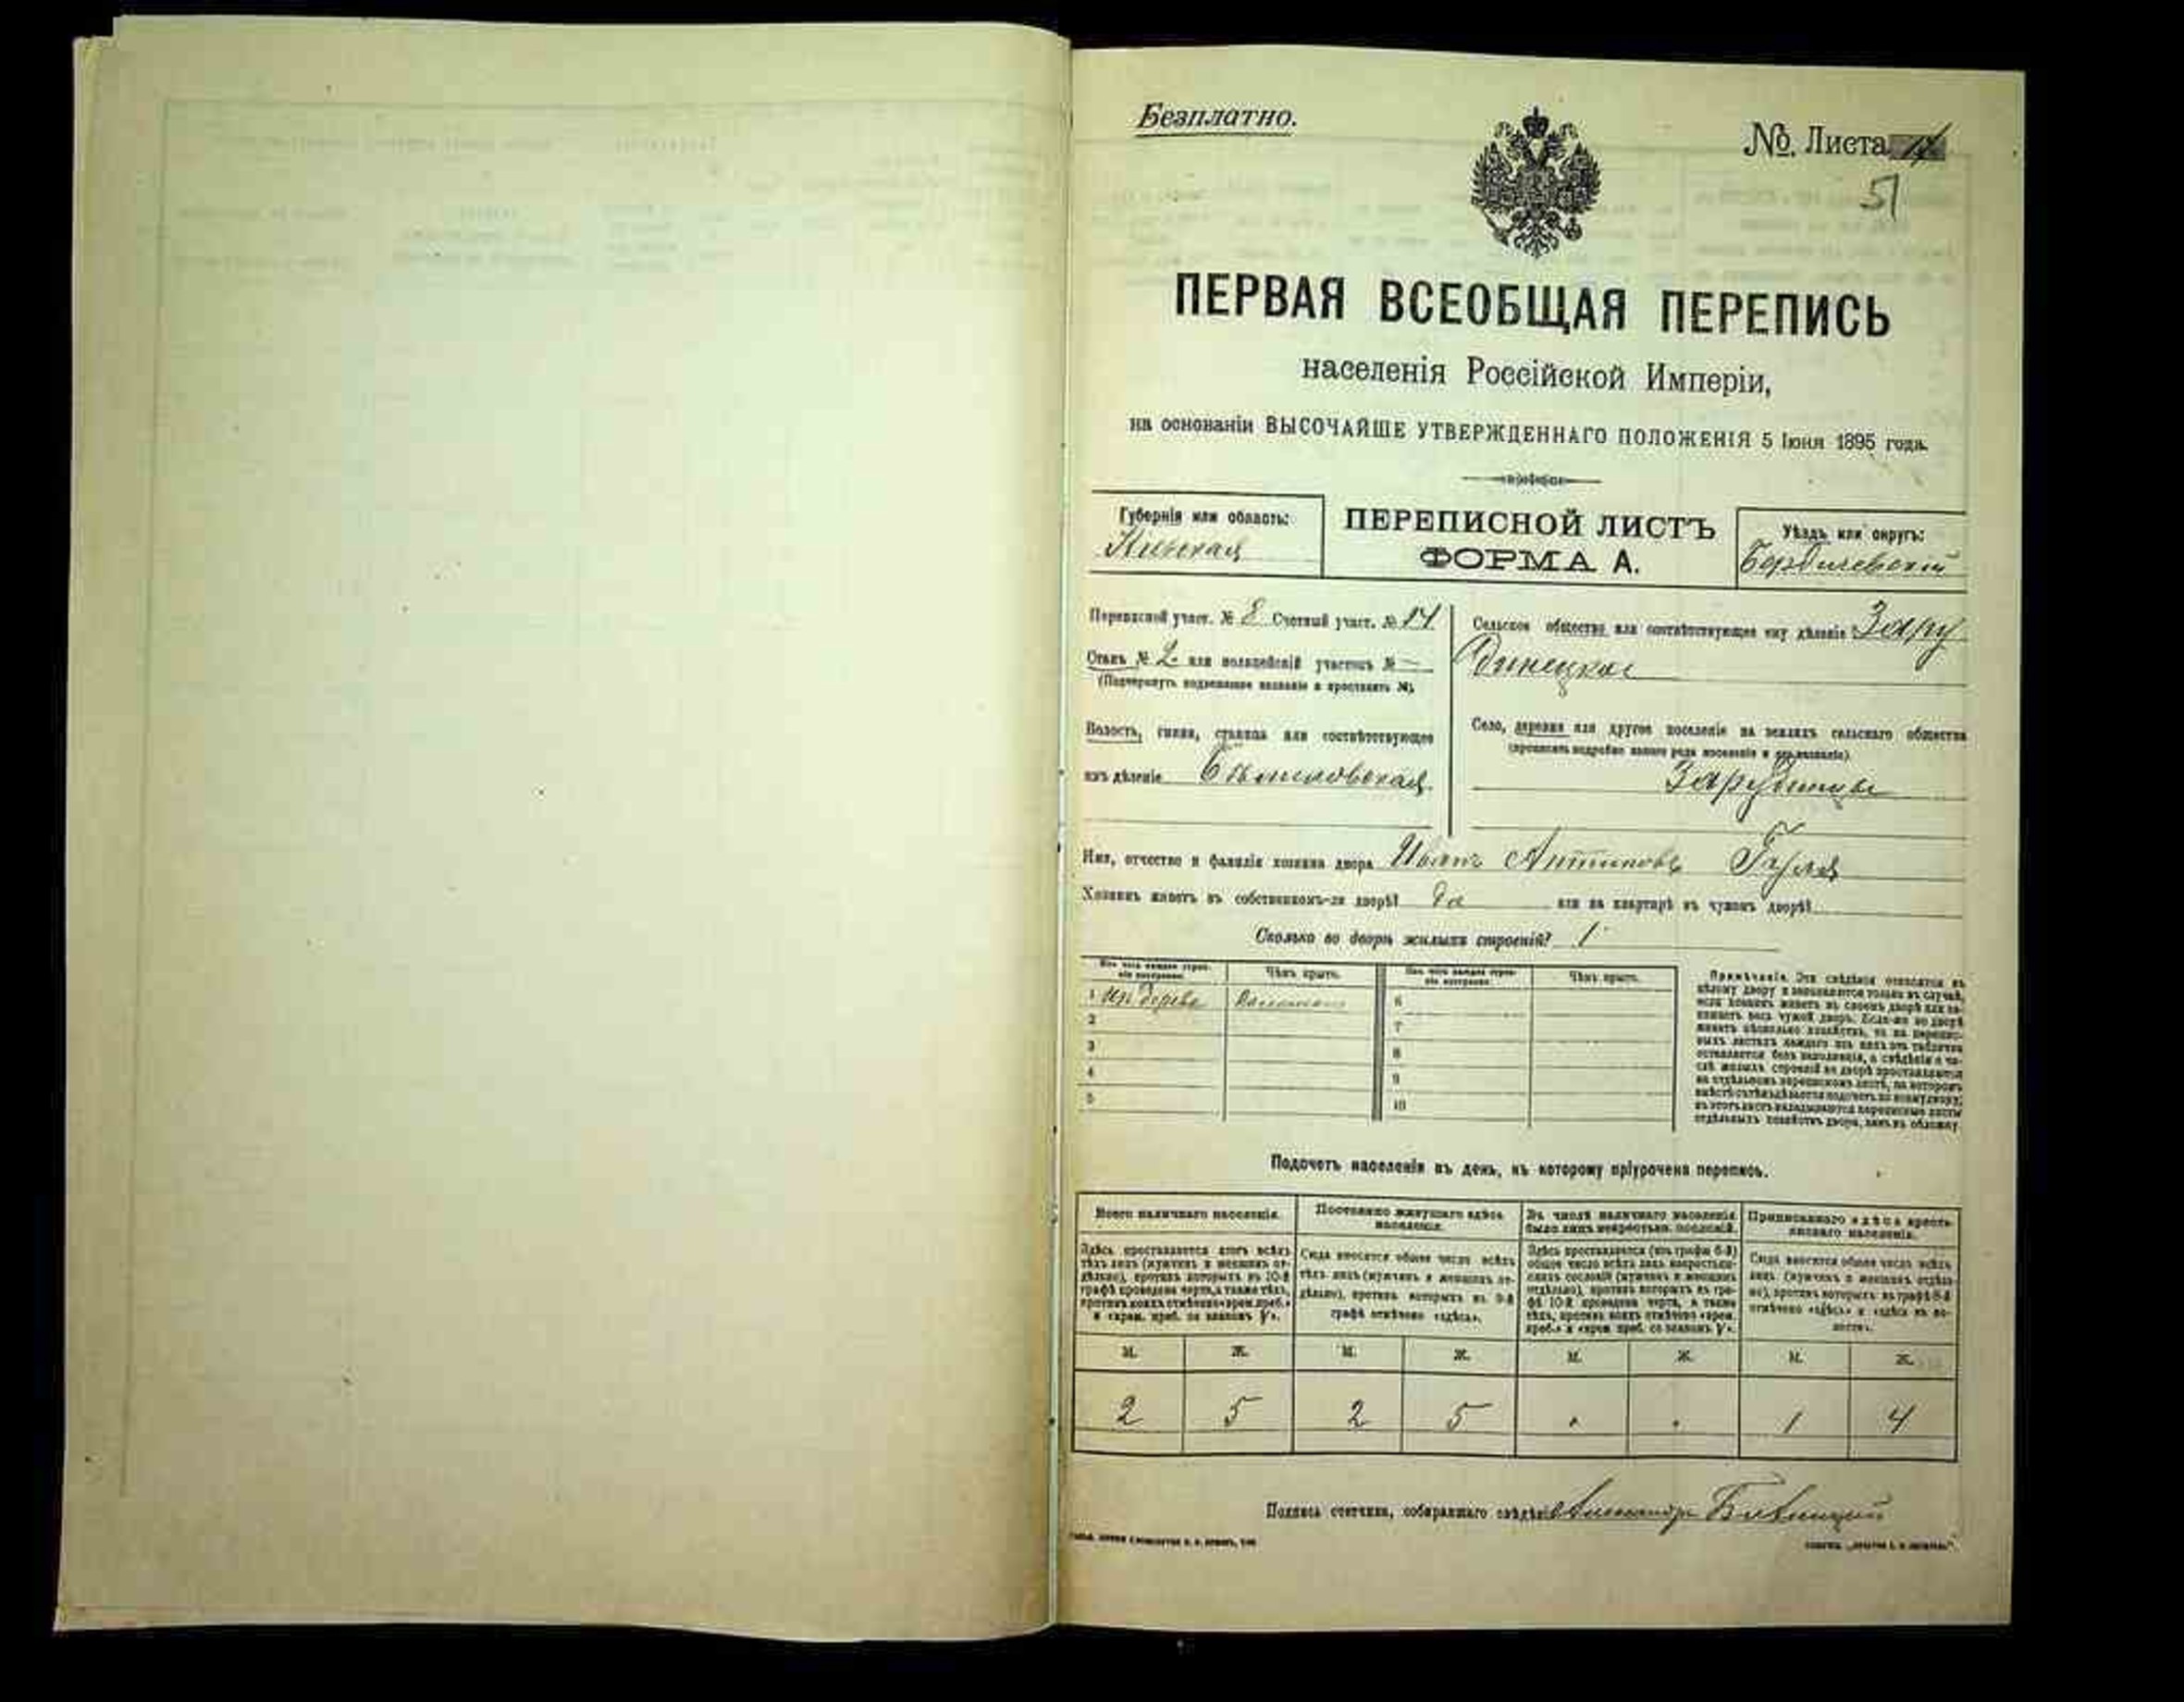 Безплатно.
№ Листа
51
ПЕРВАЯ ВСЕОБЩАЯ ПЕРЕПИСЬ
населенія Россійской Имперіи,
на основаніи ВЫСОЧАЙШЕ УТВЕРЖДЕННАГО ПОЛОЖЕНІЯ 5 Іюня 1895 года.
Губернія или область:
Кіевская
ПЕРЕПИСНОЙ ЛИСТЪ
ФОРМА А.
Уѣздъ или округъ:
Бердичевскій
Переписной участ. № 8 Счетный участ. № 14
Станъ № 2 или полицейскій участокъ № —
(Подчеркнуть надлежащее названіе и проставить №).
Волость, гмина, станица или соотвѣтствующее
имъ дѣленіе
Сельское общество или соотвѣтствующее ему дѣленіе Зару
динецкое
Село, деревня или другое поселеніе на земляхъ сельскаго общества
(прописать подробно какого рода поселеніе и его названіе).
Зарудинцы
Имя, отчество и фамилія хозяина двора Иванъ Антиповъ
Хозяинъ живетъ въ собственномъ-ли дворѣ? да или на квартирѣ въ чужомъ дворѣ?
Сколько во дворѣ жилыхъ строеній? 1
Изъ чего каждое строеніе построено. Чѣмъ крыто. Изъ чего каждое строеніе построено. Чѣмъ крыто.
1 изъ дерева 6
2 7
3 8
4 9
5 10
Примѣчаніе. Эти свѣдѣнія относятся къ
цѣлому двору и заполняются только въ случаѣ,
если хозяинъ живетъ въ своемъ дворѣ или за-
нимаетъ весь чужой дворъ. Если-же во дворѣ
живетъ нѣсколько хозяйствъ, то на перепис-
ныхъ листахъ каждаго изъ нихъ эта табличка
оставляется безъ заполненія, а свѣдѣнія о чи-
слѣ жилыхъ строеній во дворѣ проставляются
на отдѣльномъ переписномъ листѣ, на которомъ
вмѣстѣ съ тѣмъ дѣлается подсчетъ по всему двору;
въ этотъ листъ вкладываются переписные листы
отдѣльныхъ хозяйствъ двора, какъ въ обложку.
Подсчетъ населенія въ день, къ которому пріурочена перепись.
Всего наличнаго населенія.
Здѣсь проставляется итогъ всѣхъ
тѣхъ лицъ (мужчинъ и женщинъ от-
дѣльно), противъ которыхъ въ 10-й
графѣ проведена черта, а также тѣхъ,
противъ коихъ отмѣчено «врем. преб.»
и «врем. преб. со знакомъ V».
Постоянно живущаго здѣсь
населенія.
Сюда вносится общее число всѣхъ
тѣхъ лицъ (мужчинъ и женщинъ от-
дѣльно), противъ которыхъ въ 9-й
графѣ отмѣчено «здѣсь».
Въ числѣ наличнаго населенія
было лицъ некрестьян. сословій.
Здѣсь проставляется (изъ графы 6-й)
общее число всѣхъ лицъ некрестьян-
скихъ сословій (мужчинъ и женщинъ
отдѣльно), противъ которыхъ въ гра-
фѣ 10-й проведена черта, а также
тѣхъ, противъ коихъ отмѣчено «врем.
преб.» и «врем. преб. со знакомъ V».
Приписаннаго здѣсь кресть-
янскаго населенія.
Сюда вносится общее число всѣхъ
лицъ (мужчинъ и женщинъ отдѣль-
но), противъ которыхъ въ графѣ 8-й
отмѣчено «здѣсь» и «здѣсь въ во-
лости».
М. Ж. М. Ж. М. Ж. М. Ж.
2 5 2 5 1 4
Подпись счетчика, собиравшаго свѣдѣнія Александръ